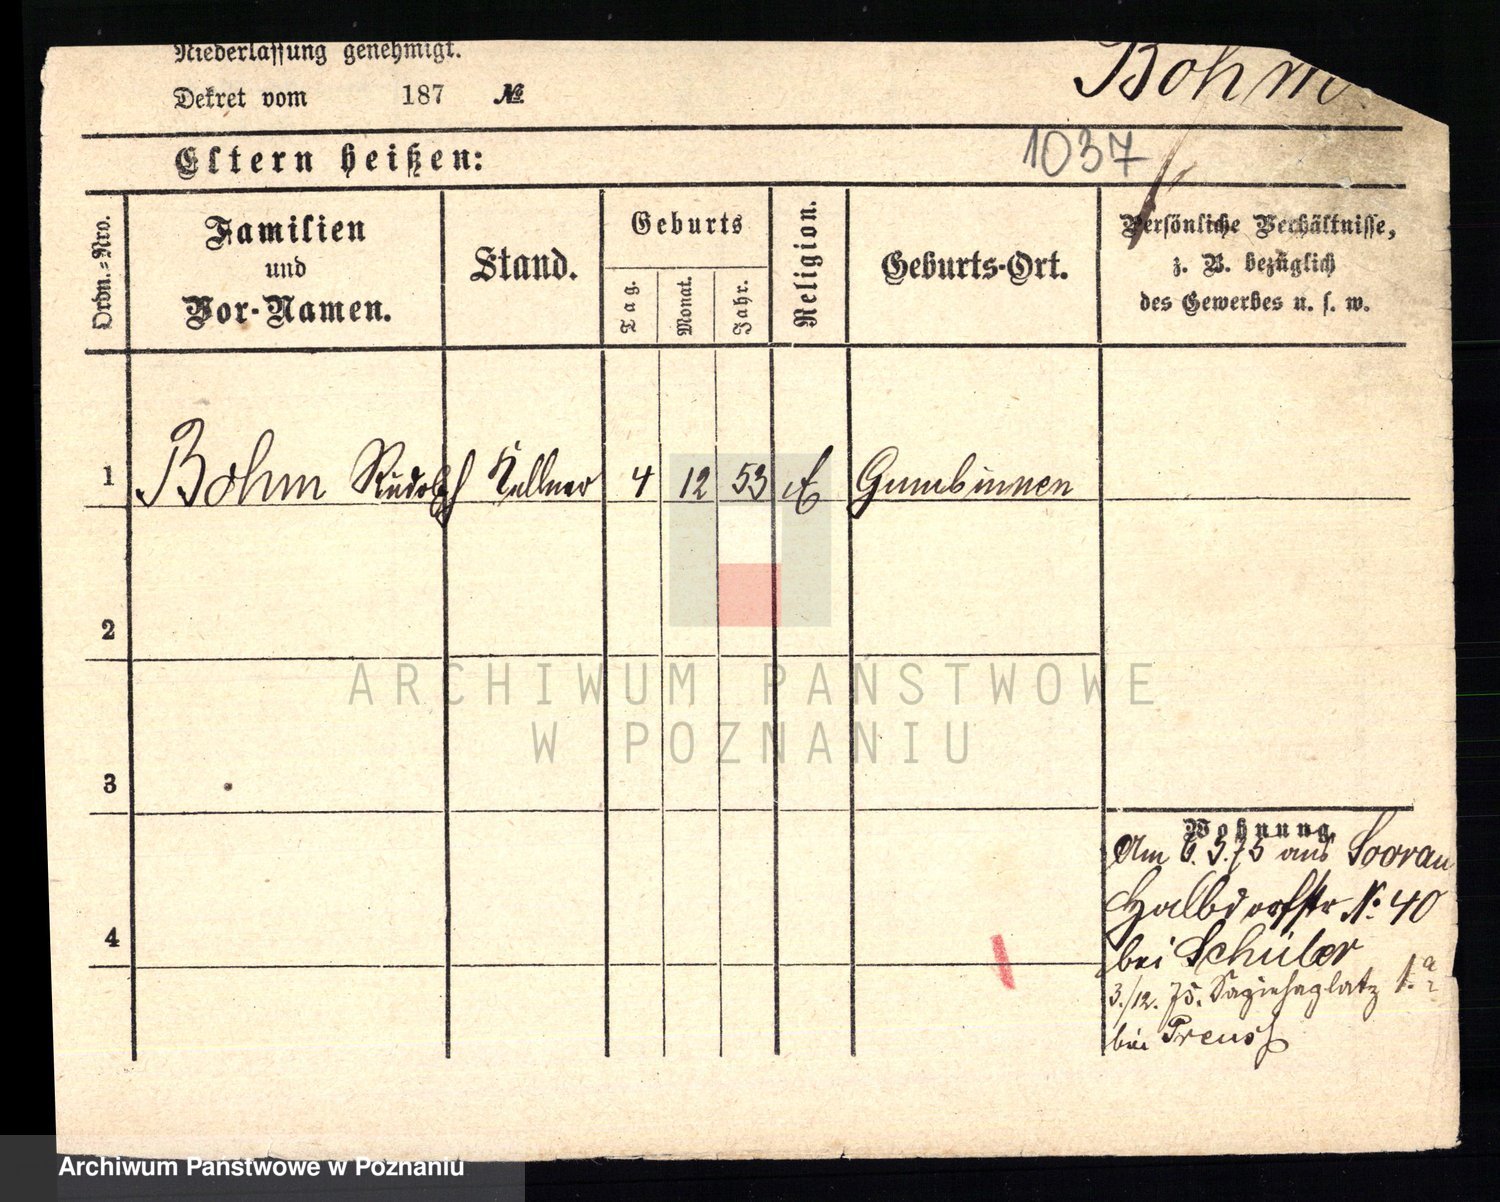 Niederlassung genehmigt.
Dekret vom 187 №
Bohm
Eltern heißen:
1037
Ordn.-Nro.
Familien
und
Vor-Namen.
Stand.
Geburts
Tag.
Monat.
Jahr.
Religion.
Geburts-Ort.
Persönliche Verhältnisse,
z. B. bezüglich
des Gewerbes u. s. w.
1 Bohm Rudolph Kellner 4 12 53 E Gumbinnen
2
3
4
Wohnung
Am 6. 3. 75 aus Sorau
Halbdorfstr № 40
bei Schüler
3./12. 75. Sapiehaplatz 1.
bei Preuss
ARCHIWUM PAŃSTWOWE
W POZNANIU
Archiwum Państwowe w Poznaniu